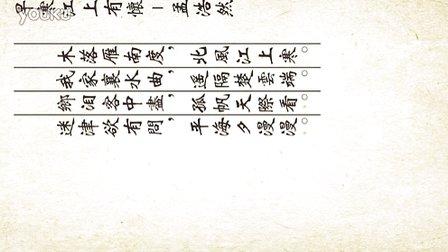 早寒江上有懷-孟浩然
木落雁南度,北風江上寒。
我家襄水曲,遙隔楚雲端。
鄉淚客中盡,孤帆天際看。
迷津欲有問,平海夕漫漫。